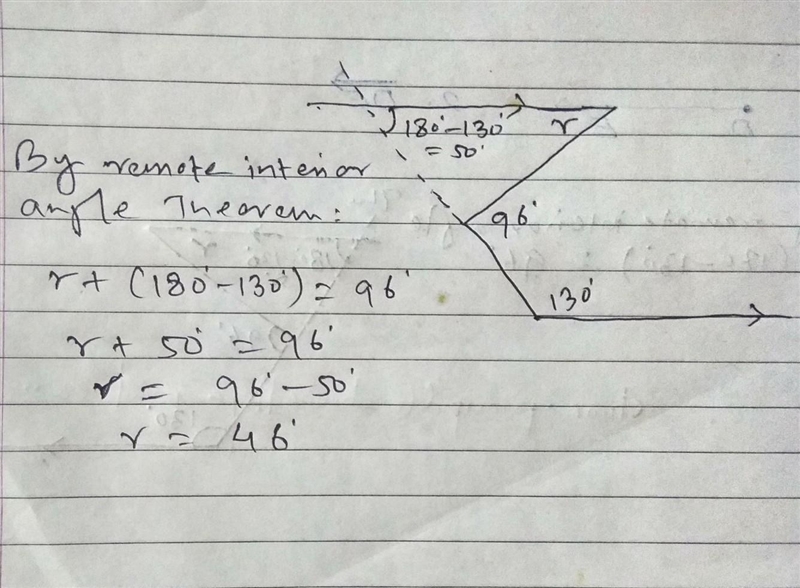 180°-130°
= 50°
r
96°
130°
By remote interior
angle Theorem:
r + (180°-130°) = 96°
r + 50° = 96°
r = 96°-50°
r = 46°